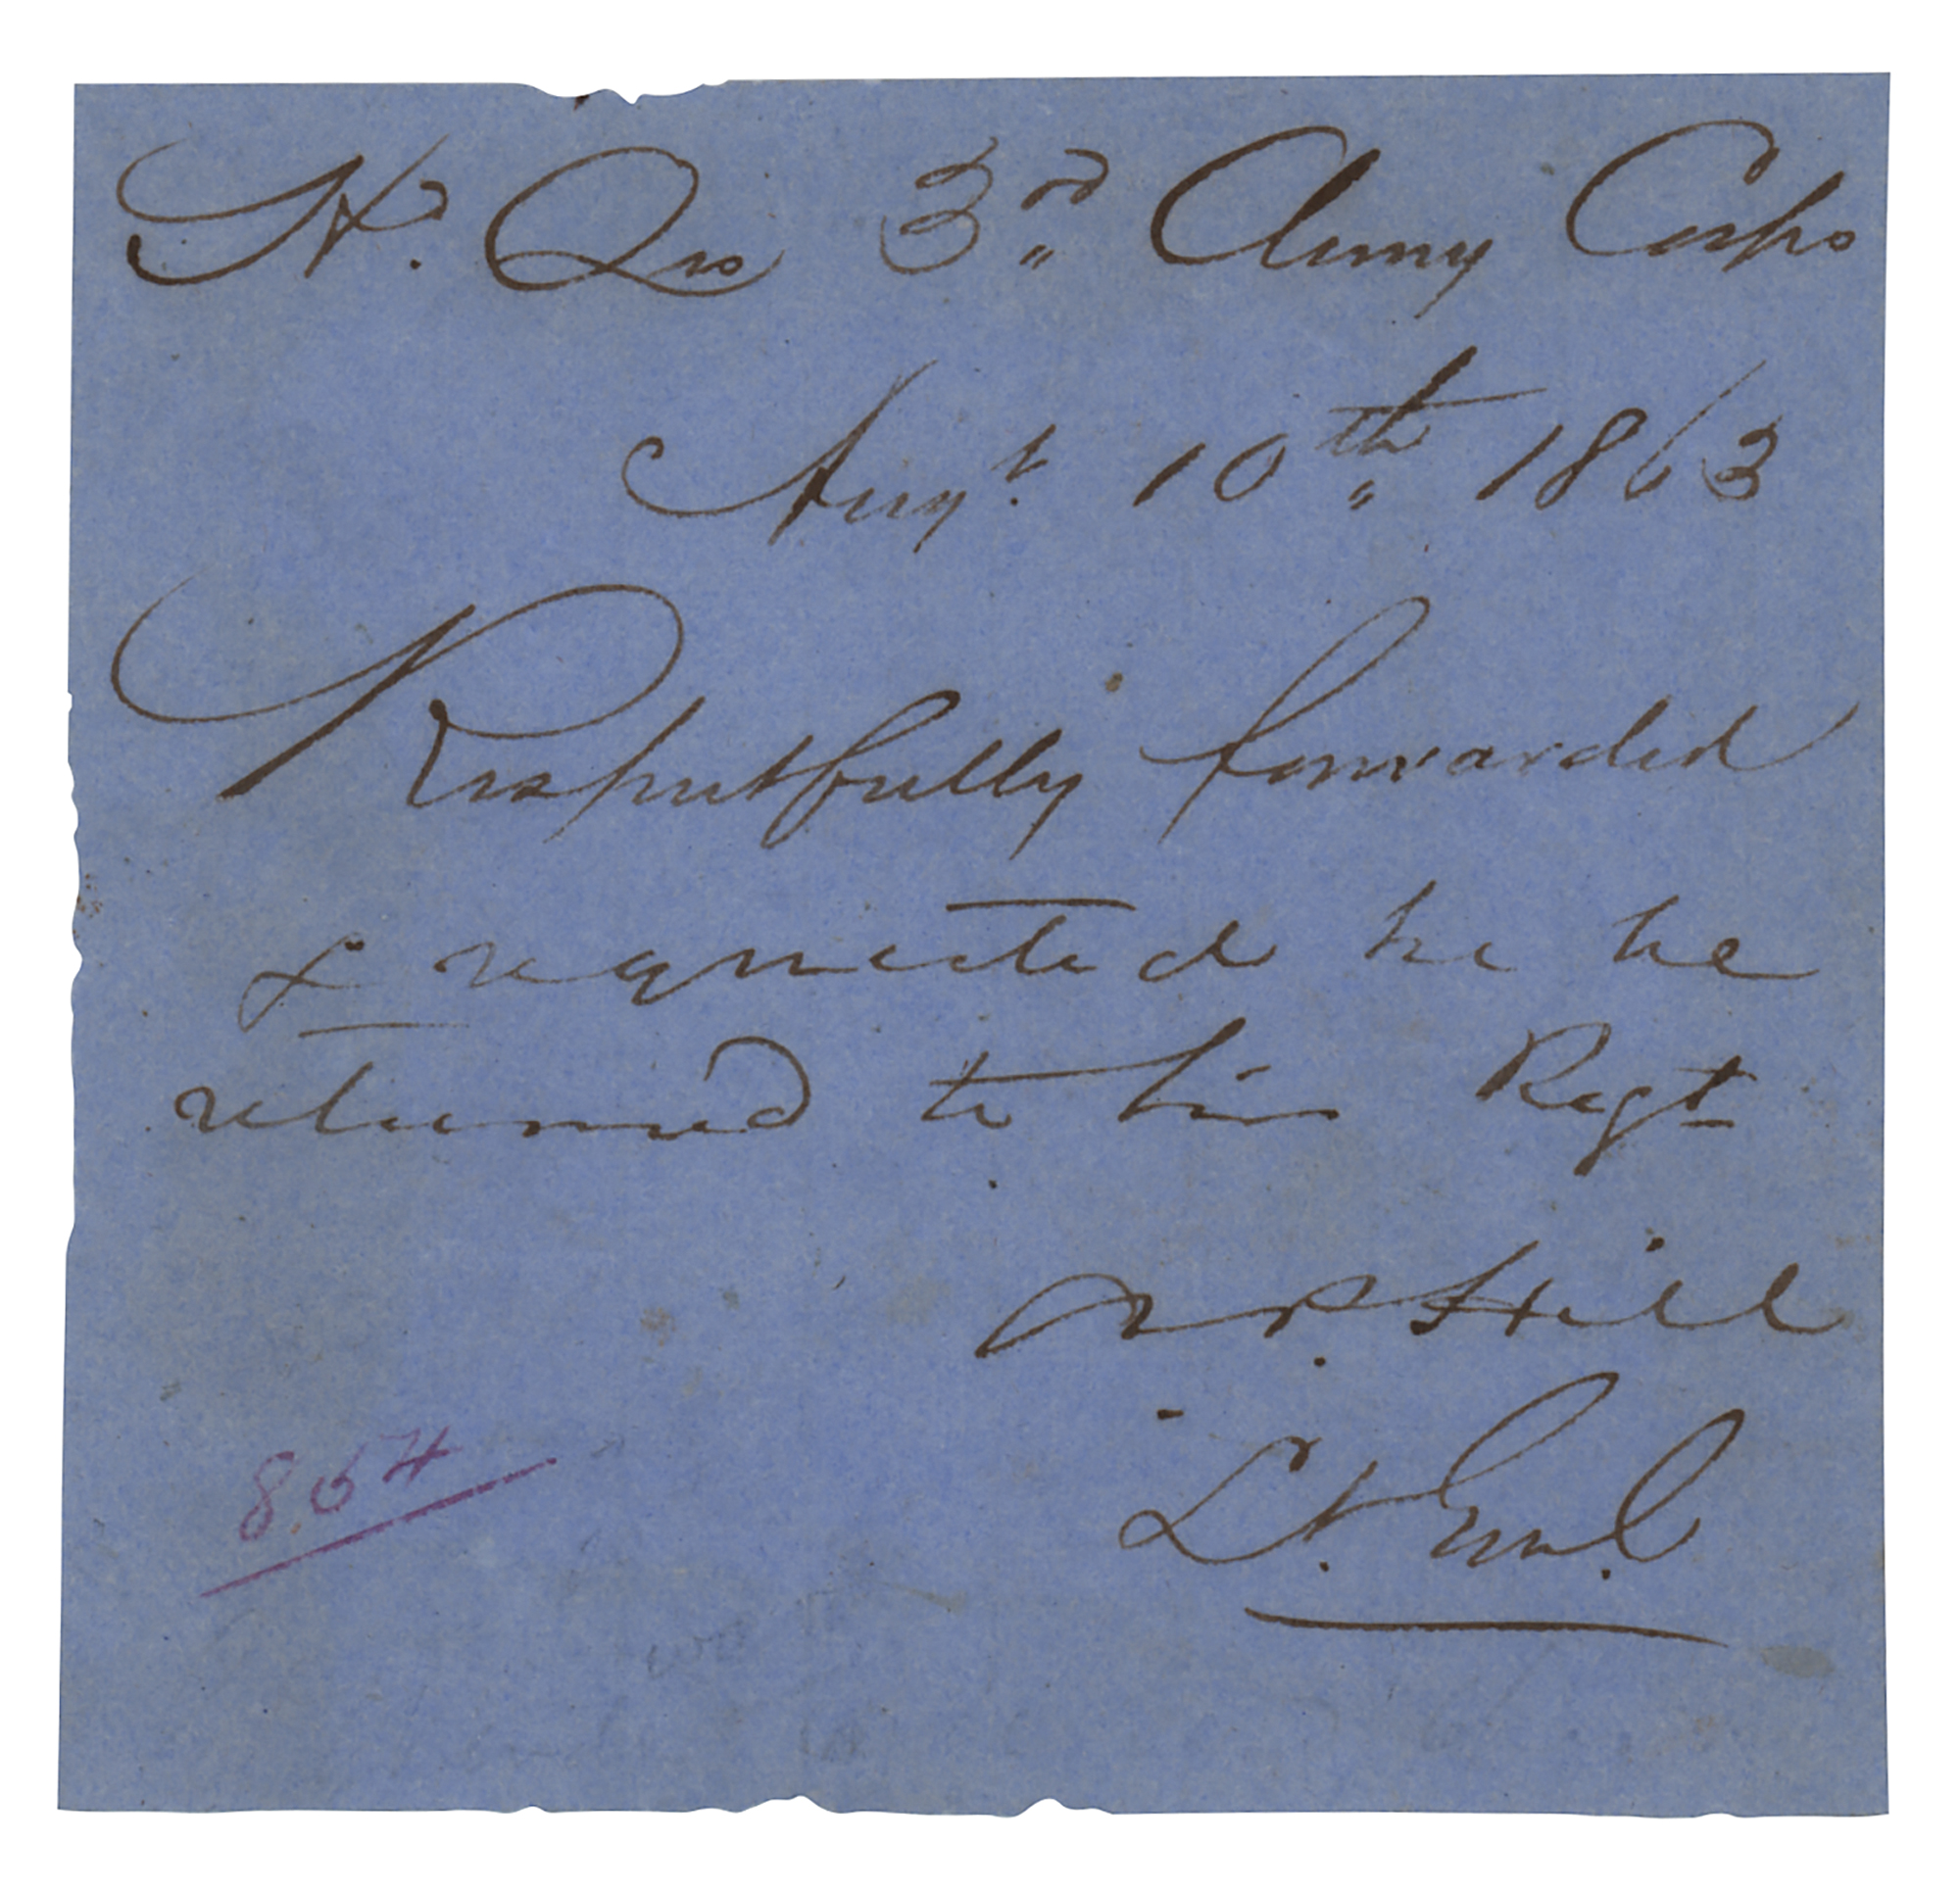 Hd. Qrs 3rd Army Corps
Augt. 10th 1863
Respectfully forwarded
& requested he be
returned to his Regt
A P. Hill
Lt. Genl.
864